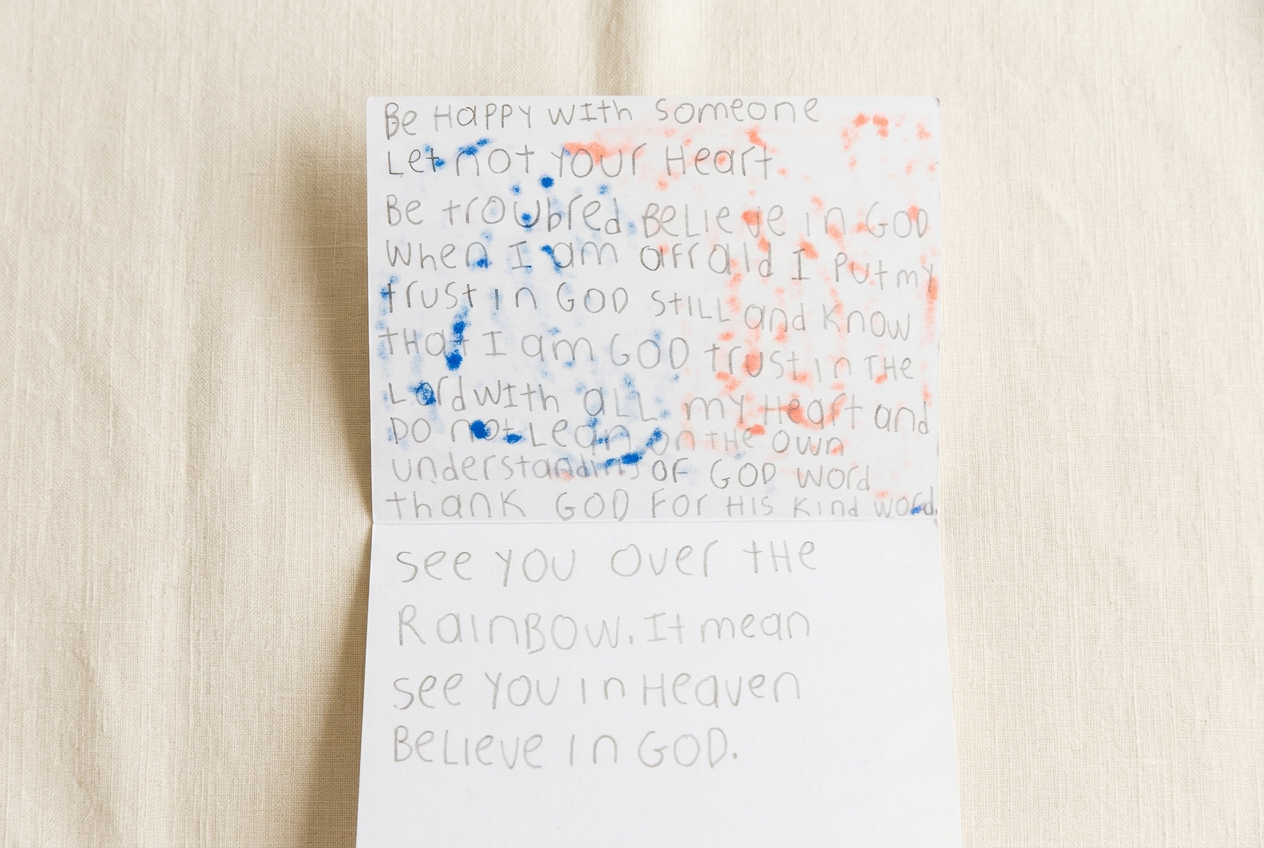 Be HAPPY WITH Someone
Let not your Heart.
Be troubred. BeLieve in GOD
When I am afraid I Put my
trust in GOD STILL and Know
tHat I am GOD trust in THe
Lord WITH aLL my Heart and
DO not Lean on THe Own
understanding OF GOD WOrd
thank GOD For HIS Kind word.
see YOU Over tHe
RainBOW. It mean
see YOU in Heaven
BeLieve in GOD.